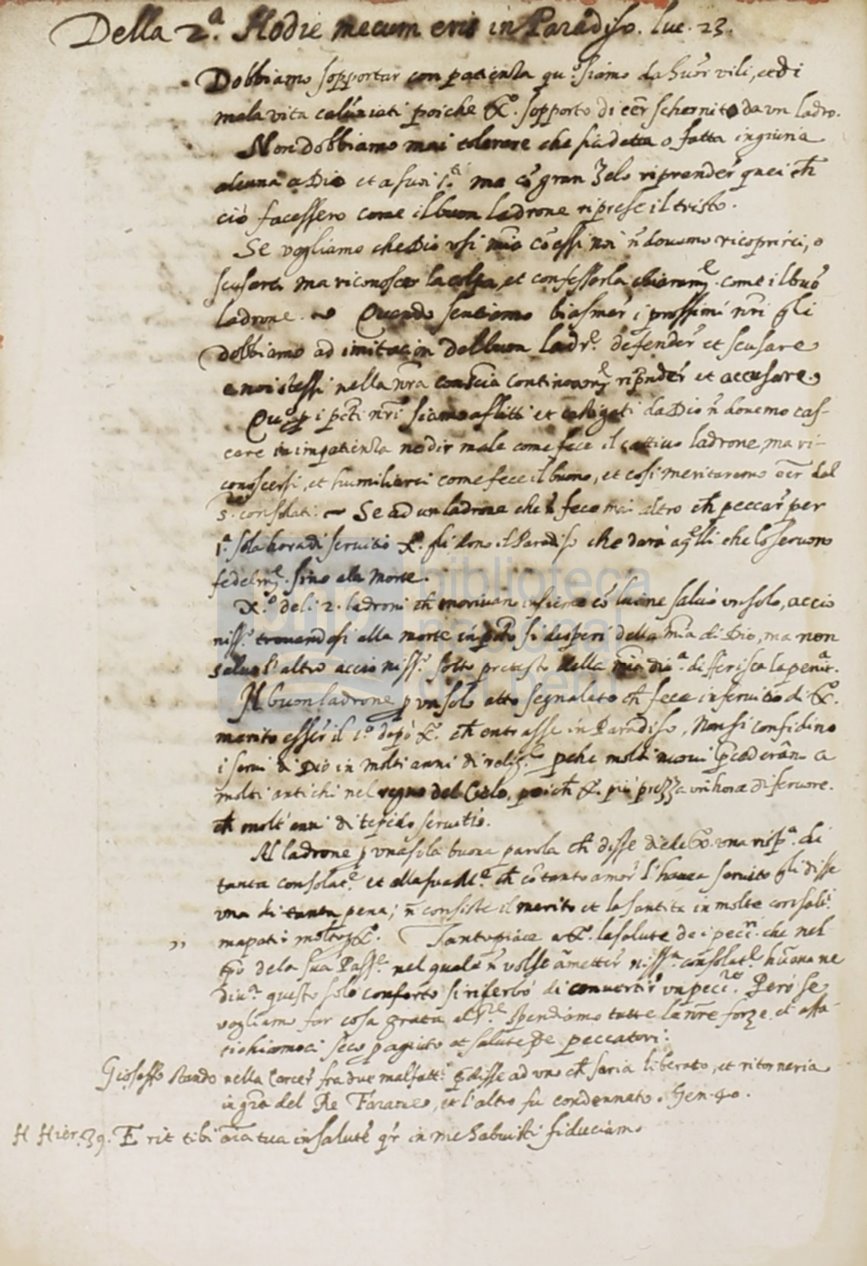 Della 2.ª Hodie mecum eris in Paradiso. luc. 23.
Dobbiamo sopportar con patienza qu.º siamo da huor vili, et di
mala vita caluniati poiche X.º sopportò di eer schernito da un ladro.
Non dobbiamo mai tolerare che sia detta o fatta ingiuria
alcuna a Dio et a suoi s.ti ma cõ gran zelo riprender quei ch
ciò facessero come il buon ladrone riprese il tristo.
Se vogliamo che Dio usi mia cõ essi noi ñ douemo ricoprirci, o
scusarci ma riconoscer la colpa, et confessarla chiaram.e come il buõ
ladrone. Quando sentiamo biasmar i prossimi nri gli
dobbiamo ad imitacion del buon ladr.e defender et scusare
e noi stessi nella nra conscia continoam.e riprnder et accusare.
Qu.º p i pcti nri siamo aflitti et castigati da Dio ñ douemo cas-
care in impatienza ne dir male come fece il cattiuo ladrone, ma ri-
conoscersi, et humiliarci come fece il buono, et cosi meritaremo eer dal
s.re consolati. Se ad un ladrone che ñ fece mai altro ch peccar per
1.ª sola hora di seruitio X.º gli donò il Paradiso che darà a qlli che lo seruono
fedelm.e sino alla morte.
X.º de li 2. ladroni ch moriuan insieme cõ lui ne saluò un solo, acciò
niss.º trouandosi alla morte in pcto si desperi della mia di Dio, ma non
saluò l'altro acciò niss.º sotto pretesto della mia diu.ª differisca la penit.ª
Il buon ladrone p un solo atto segnalato ch fece in seruitio di X.º
meritò esser il 1.º dopò X.º ch entrasse in Paradiso, Non si confidino
i serui di Dio in molti anni di relig.e perche molti nuoui precederãno a
molti antichi nel regno del Cielo, poich X.º più prezza un hora di feruore
ch molt'anni di tepido seruitio.
Al ladrone p una sola buona parola ch disse diede X.º una risp.ª di
tanta consolat.e et alla sua M.e ch cõ tanto amor l'hauea seruito gli disse
una di tanta pena; ñ consiste il merito et la santità in molte consolat.i
ma patir molto p X.º Tanto piace a X.º la salute de i pecri che nel
tpo de la sua Pass.e nel quale ñ volse ametter niss.ª consolat.e humana ne
diu.ª questo solo conforto si riserbò di conuertir un pecc.re Però se
vogliamo far cosa grata al S.re spendiamo tutte le nre forze, et affa-
tichiamoci seco p agiuto et salute de peccatori.
Gioseffo stando nella Carcer fra due malfatt.i pdisse ad uno ch saria liberato, et ritorneria
in gra del Re Faraone, et l'altro fu condennato. Gen. 40.
H Hier. 39. Erit tibi aia tua in salute qr in me habuisti fiduciam